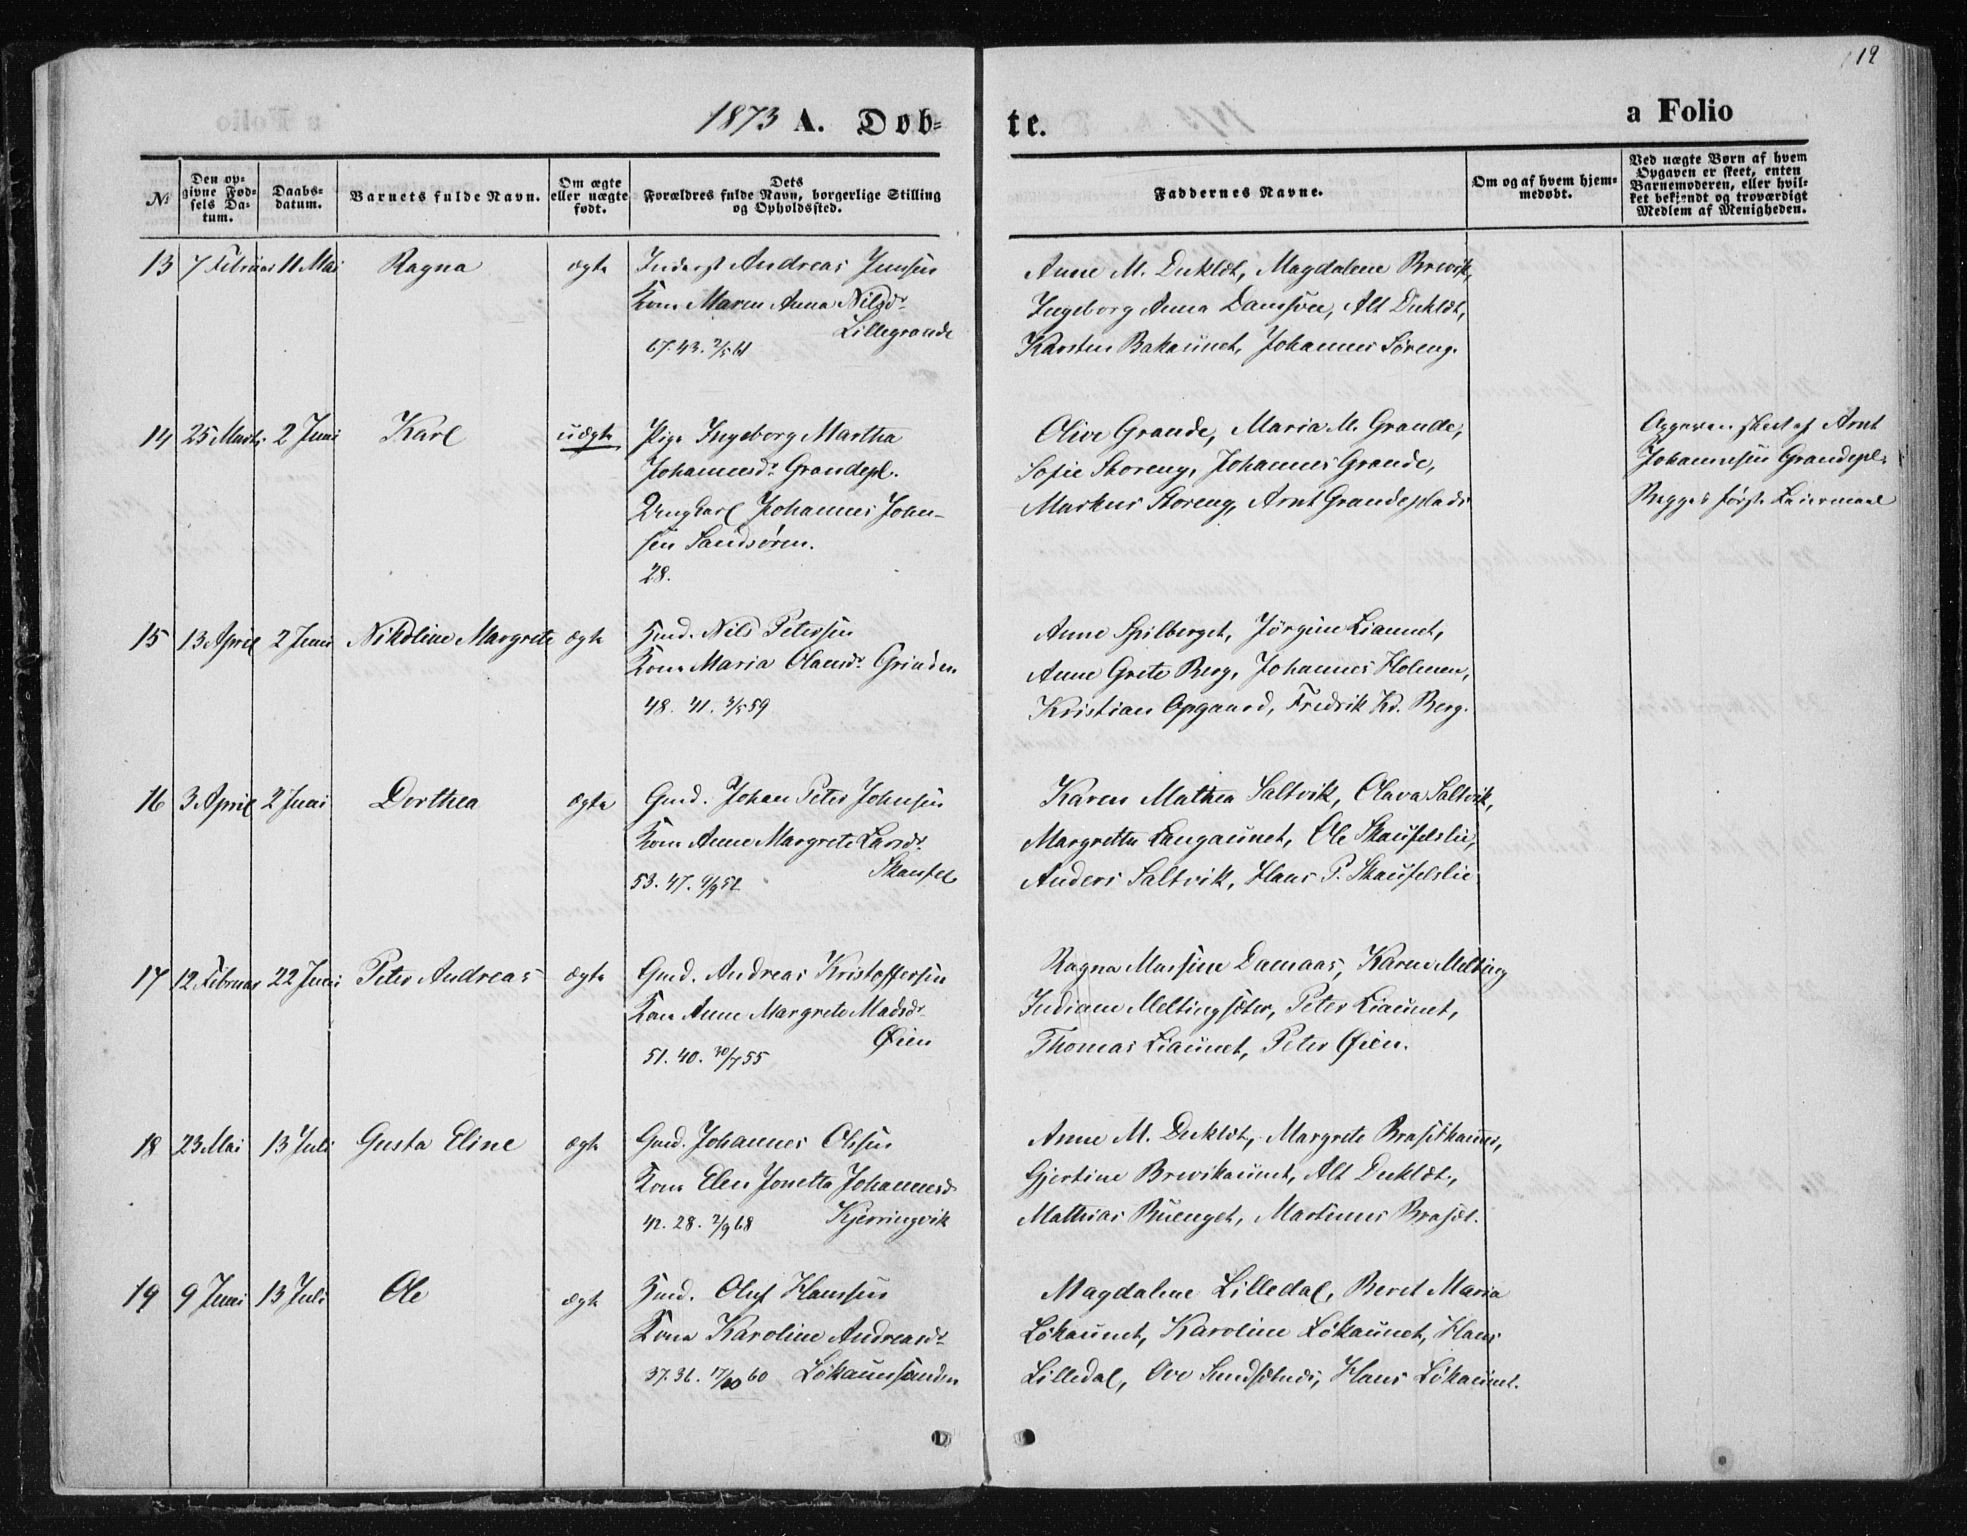 12
1873 A. Døb-
te.
a Folio
No
Den op-
givne Fød-
sels Da-
tum.
Daabs-
datum.
Barnets fulde Navn.
Om ægte
eller uægte
født.
Dets
Forældres fulde Navn, borgerlige Stilling
og Opholdssted.
Faddernes Navne.
Om og af hvem hjem-
medøbt.
Ved uægte Børn af hvem
Opgaven er skeet, enten
Barnemoderen, eller hvil-
ket bekjendt og troværdigt
Medlem af Menigheden.
13 7 Februar 11 Mai Ragna ægte
Inderst Andreas Jensen
Kone Maren Anna Nilsdr
Lillegrande
67. 43. 2/5 61
Anne M. Dukldt, Magdalene Brevik,
Ingeborg Anna Damsøen, Alt Dukldt,
Karsten Bakaunet, Johannes Søreng.
14 25 Marts 2 Juni Karl uægte
Pige Ingeborg Martha
Johannesdr Grandepl.
Ungkarl Johannes Johan-
sen Sandsøren.
28.
Olive Grande, Maria M. Grande,
Sofie Storeng, Johannes Grande,
Markus Storeng, Arnt Grandesplads
Opgaven skeet af Arnt
Johannesen Grandepl.
Begges første Leiermaal
15 13 April 2 Juni Nikoline Margrete ægte
Hmd. Nils Petersen
Kone Maria Olausdr Grinden
48. 41. 3/5 59
Anne Spilberget, Jørgine Liaunet,
Anne Grete Berg, Johannes Holmen,
Kristian Opgaard, Fredrik Kd. Berg.
16 3 April 2 Juni Dorthea ægte
Gmd. Johan Peter Johnsen
Kone Anne Margrete Larsdr
Skaufel
53. 47. 9/9 52
Karen Mathea Saltvik, Olava Saltvik,
Margrethe Langaunet, Ole Skaufelslie,
Anders Saltvik, Hans P. Skaufelslie
17 12 Februar 22 Juni Peter Andreas ægte
Gmd. Andreas Kristoffersen
Kone Anne Margrete Madsdr
Øien
51. 40. 30/7 55
Ragna Massine Damaas, Karen Melting
Indiane Meltingsæter, Peter Liaunet,
Thomas Liaunet, Peter Øien.
18 23 Mai 13 Juli Gusta Eline ægte
Gmd. Johannes Olsen
Kone Elen Jonetta Johannesdr
Kjerringvik
42. 28. 2/9 68
Anne M. Dukldt, Margrete
Gjertine Brevikaunet, Alt Dukldt,
Mathias Buenget, Martinus
19 9 Juni 13 Juli Ole ægte
Hmd. Oluf Hansen
Kone Karoline Andreasdr
37. 36. 17/10 60 Løkaunsanden
Magdalene Lilledal, Beret Maria
Løkaunet, Karoline Løkaunet, Hans
Lilledal, Ove Sundsetnes, Hans Løkaunet.